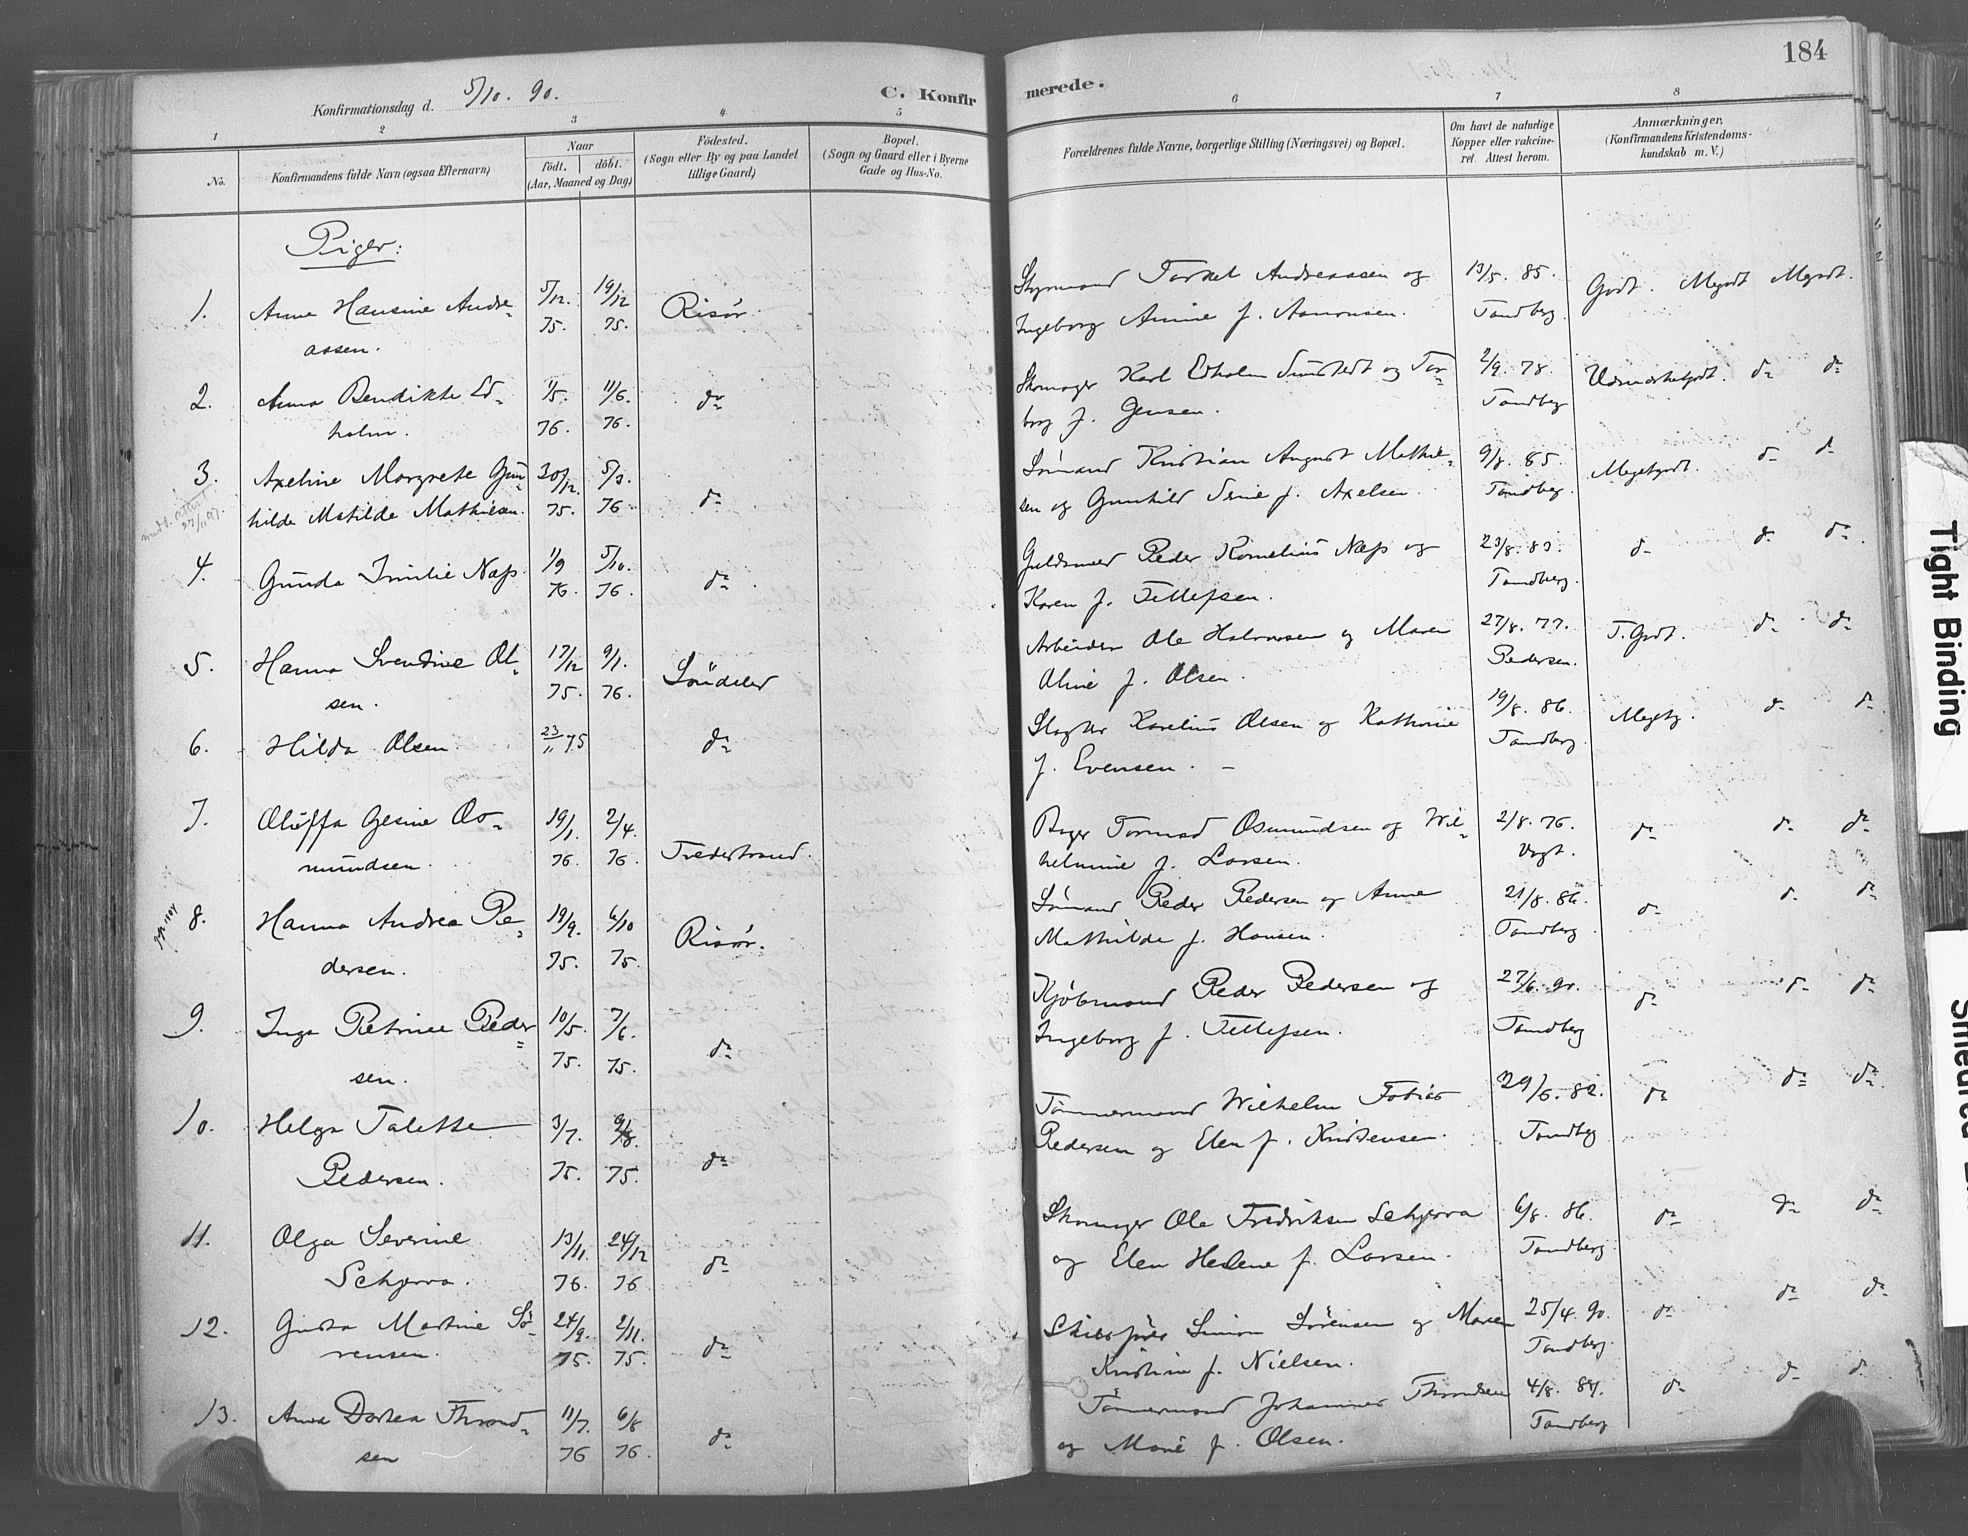 184
Konfirmationsdag d. 5/10. 90.
C. Konfir
merede.
1 2 3 4 5 6 7 8
No.
Konfirmandens fulde Navn (ogsaa Efternavn)
Naar
födt. döbt.
(Aar, Maaned og Dag)
Födested.
(Sogn eller By og paa Landet
tillige Gaard)
Bopæl.
(Sogn og Gaard eller i Byerne
Gade og Hus-No.
Forældrenes fulde Navne, borgerlige Stilling (Næringsvei) og Bopæl.
Om havt de naturlige
Kopper eller vaccine-
ret. Attest herom.
Anmærkninger.
(Konfirmandens Kristendoms-
kundskab m. V.)
Piger:
1. Anna Hansine Andre- 5/12. 19/12 Risør. Styrmand Torkel Andreassen og 13/5. 85. Godt. Megodt Megodt.
assen. 75. 75. Ingeborg Annie f. Aanonsen. Tandberg.
2. Anna Bendikte Ed- 1/5. 11/6. do Skomager Karl Edholm og Tor- 2/9. 78. Udmærketgodt. do do
holm. 76. 76. borg f. Jensen. Tandberg
3. Axeline Margrete Gun- 30/12. 5/3. do Sømand Kristian August Mathie- 9/8. 85. Megetgodt. do do
hilde Matilde Mathiesen. 75. 76 sen og Gunhild f. Axelsen. Tandberg.
27/11 97.
4. Gunda Emilie Næss 1/9 5/10. do Guldsmed Peder Kornelius Næss og 23/8. 83. do do do
76. 76. Karen f. Tellefsen. Tandberg.
5. Hanna Svendine Ol- 17/12 9/1. Søndeled Arbeider Ole Halvorsen og Maren 27/8. 77. T. Godt. do do
sen. 75. 76. Oline f. Olsen. Pedersen.
6. Hilda Olsen 23/11 75 do Slagter Karelius Olsen og Kathrine 19/8. 86. Megetg. do do
f. Evensen. Tandberg.
7. Oluffa Gesine Os- 19/1. 2/4. Tvedestrand. Bager Tormod Osmundsen og Wil- 2/8. 76. do do do
mundsen. 76. 76. helmine f. Larsen. Vogt.
8. Hanna Andrea Pe- 19/9. 6/10 Risør. Sømand Peder Pedersen og Anne 21/8. 86. do do do
dersen. 75. 75. Mathilde f. Hansen. Tandberg.
9. Inga Petrine Peder- 10/5. 7/6. do Kjøbmand Peder Pedersen og 27/6. 90. do do do
sen. 75. 75. Ingeborg f. Tellefsen. Tandberg
10. Helga Talette 3/7. do Tømmermand Wilhelm Tobias 29/6. 82. do do do
Pedersen. 75. 75. Pedersen og Elen f. Kristensen. Tandberg
11. Olga Severine 13/11. 24/12 do Skomager Ole Fredriksen Schjerva 6/8. 86. do do do
Schjerva. 76. 76 og Elen Helene f. Larsen. Tandberg.
12. Gusta Martine Sø- 24/9. 2/11. do Skibsfører Simon Sørensen og Maren 25/4. 90. do do do
rensen. 75. 75. Kristine f. Nielsen. Tandberg.
13. Anna Dortea Thrond- 11/7. 6/8 do Tømmermand Johannes Throndsen 4/8. 87. do do do
sen 76 76. og Marie f. Olsen. Tandberg
Tight Binding